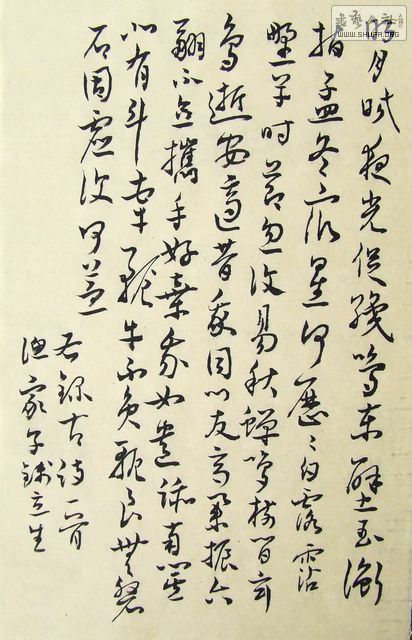 明月皎夜光促織鳴東壁玉衡
指孟冬眾星何歷〻白露霑
野草時節忽復易秋蟬鳴樹間玄
鳥逝安適昔我同門友高舉振六
翮不念攜手好棄我如遺跡南箕
北有斗牽牛不負軛良無磐
石固虛復何益
右錄古詩一首
漁家子立生
WWW.SHUFA.ORG